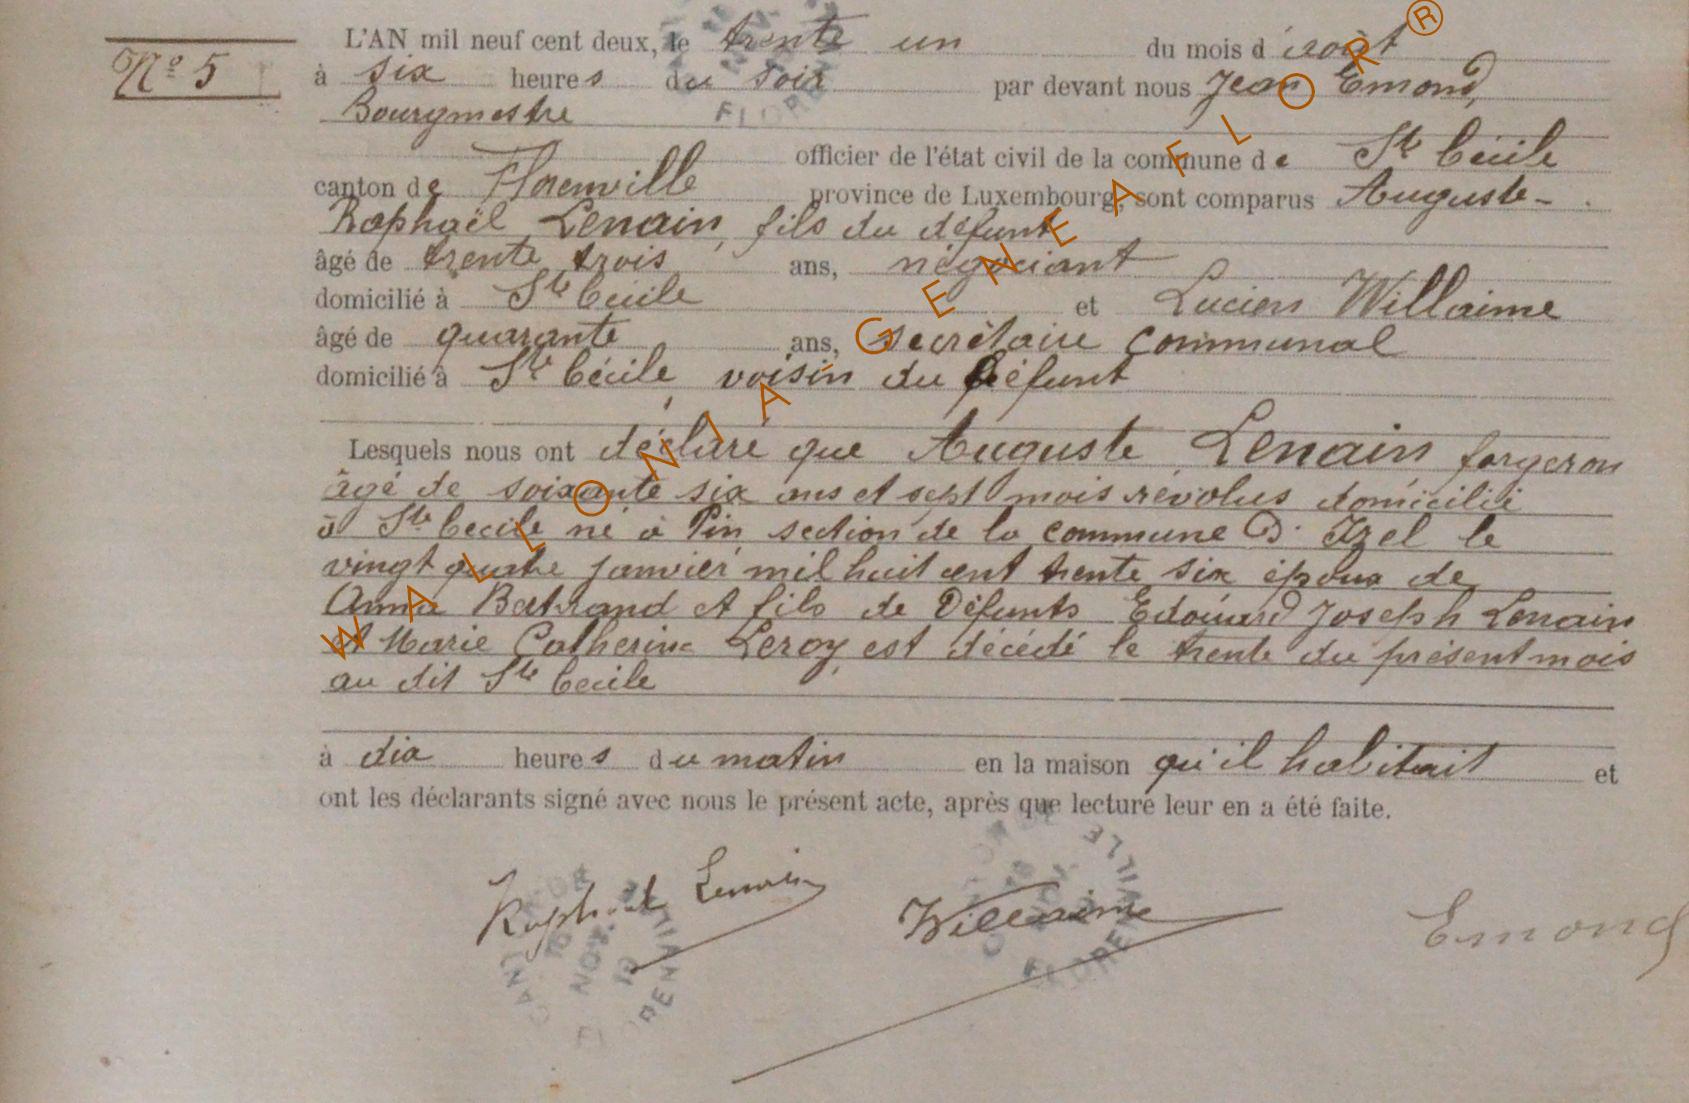 N° 5
L'AN mil neuf cent deux, le trente un du mois d'août
à six heures du soir par devant nous Jean Emond,
Bourgmestre
officier de l'état civil de la commune de Ste Cécile
canton de Florenville province de Luxembourg, sont comparus Auguste-
Raphaël Lenain, fils du défunt
âgé de trente trois ans, négociant
domicilié à Ste Cécile et Lucien Willaime
âgé de quarante ans, secrétaire communal
domicilié à Ste Cécile, voisin du défunt
Lesquels nous ont déclaré que Auguste Lenain forgeron
âgé de soixante six ans et sept mois révolus domicilié
à Ste Cecile né à Pin section de la commune D'Izel le
vingt quatre janvier mil huit cent trente six époux de
Anna Bertrand et fils de Défunts Edouard Joseph Lenain
et Marie Catherine Leroy, est décédé le trente du présent mois
au dit Ste Cecile
à dix heures du matin en la maison qu'il habitait et
ont les déclarants signé avec nous le présent acte, après que lecture leur en a été faite.
Raphaël Lenain Willaime Emond
WALLONIA - GENEAFLOR ®
FLORENVILLE